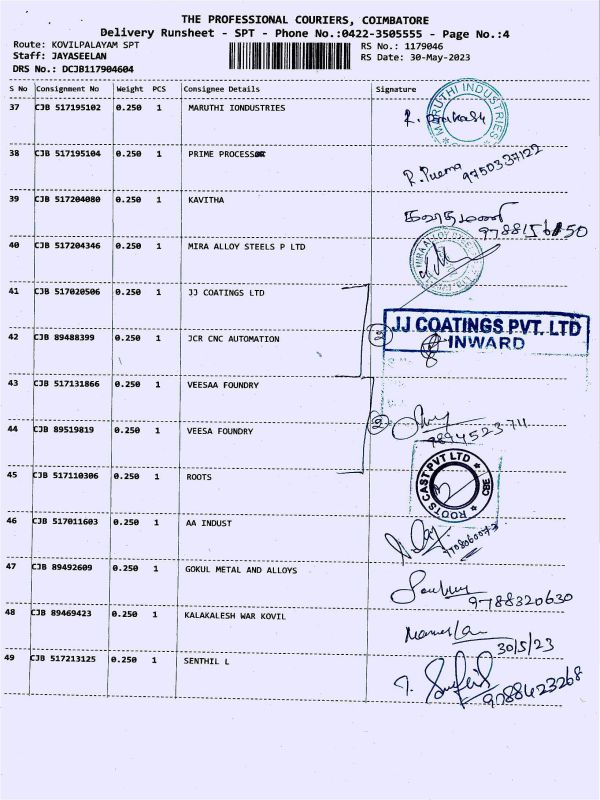 THE PROFESSIONAL COURIERS, COIMBATORE
Delivery Runsheet - SPT - Phone No.:0422-3505555 - Page No.:4
Route: KOVILPALAYAM SPT
RS No.: 1179046
Staff: JAYASEELAN
RS Date: 30-May-2023
DRS No.: DCJB117904604
S No Consignment No Weight PCS Consignee Details Signature
37 CJB 517195102 0.250 1 MARUTHI IONDUSTRIES
MARUTHI INDUSTRIES
38 CJB 517195104 0.250 1 PRIME PROCESSOR
9750337122
39 CJB 517204080 0.250 1 KAVITHA
40 CJB 517204346 0.250 1 MIRA ALLOY STEELS P LTD
41 CJB 517020506 0.250 1 JJ COATINGS LTD
JJ COATINGS PVT. LTD
INWARD
42 CJB 89488399 0.250 1 JCR CNC AUTOMATION
43 CJB 517131866 0.250 1 VEESAA FOUNDRY
44 CJB 89519819 0.250 1 VEESA FOUNDRY
9894523711
45 CJB 517110306 0.250 1 ROOTS
ROOTS CAST PVT LTD CBE
46 CJB 517011603 0.250 1 AA INDUST
47 CJB 89492609 0.250 1 GOKUL METAL AND ALLOYS
9788320630
48 CJB 89469423 0.250 1 KALAKALESH WAR KOVIL
30/5/23
49 CJB 517213125 0.250 1 SENTHIL L
9788423268